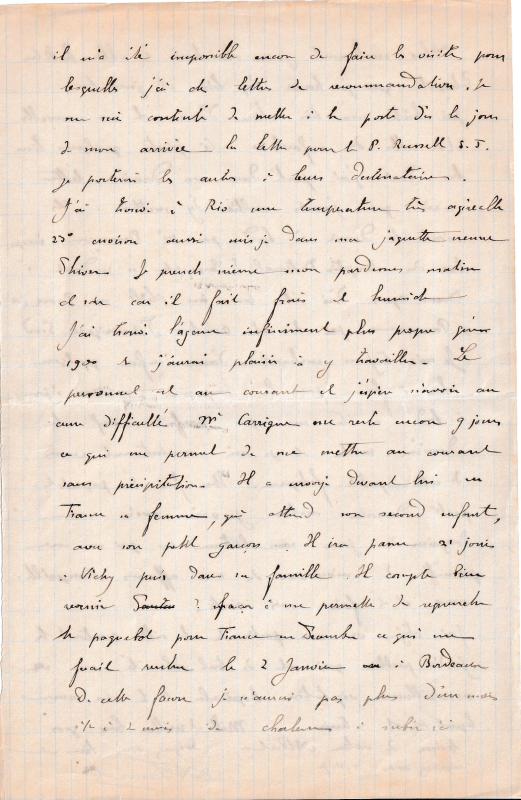 il m'a été impossible encore de faire les visites pour
lesquelles j'ai des lettres de recommandation. Je
me suis contenté de mettre à la poste dès le jour
de mon arrivée la lettre pour le P. Russell S.J.
je porterai les autres à leurs destinataires.
J'ai trouvé à Rio une température très agréable
23° environ aussi suis-je dans ma jaquette
d'hiver. Je prends même mon pardessus matin
et soir car il fait frais et humide
J'ai trouvé l'agence infiniment plus propre qu'en
1920 et j'aurai plaisir à y travailler. Le
personnel est au courant et j'espère n'avoir au
cune difficulté Mr Carrique me reste encore 9 jours
ce qui me permet de me mettre au courant
sans précipitation. Il a envoyé devant lui en
France sa femme, qui attend son second enfant,
avec son petit garçon. Il ira passer 21 jours
à Vichy puis dans sa famille. Il compte bien
revenir de façon à me permettre de reprendre
le paquebot pour France en Décembre ce qui me
ferait rentrer le 2 Janvier à Bordeaux
De cette façon je n'aurai pas plus d'un mois
et à 2 mois de chaleurs à subir ici